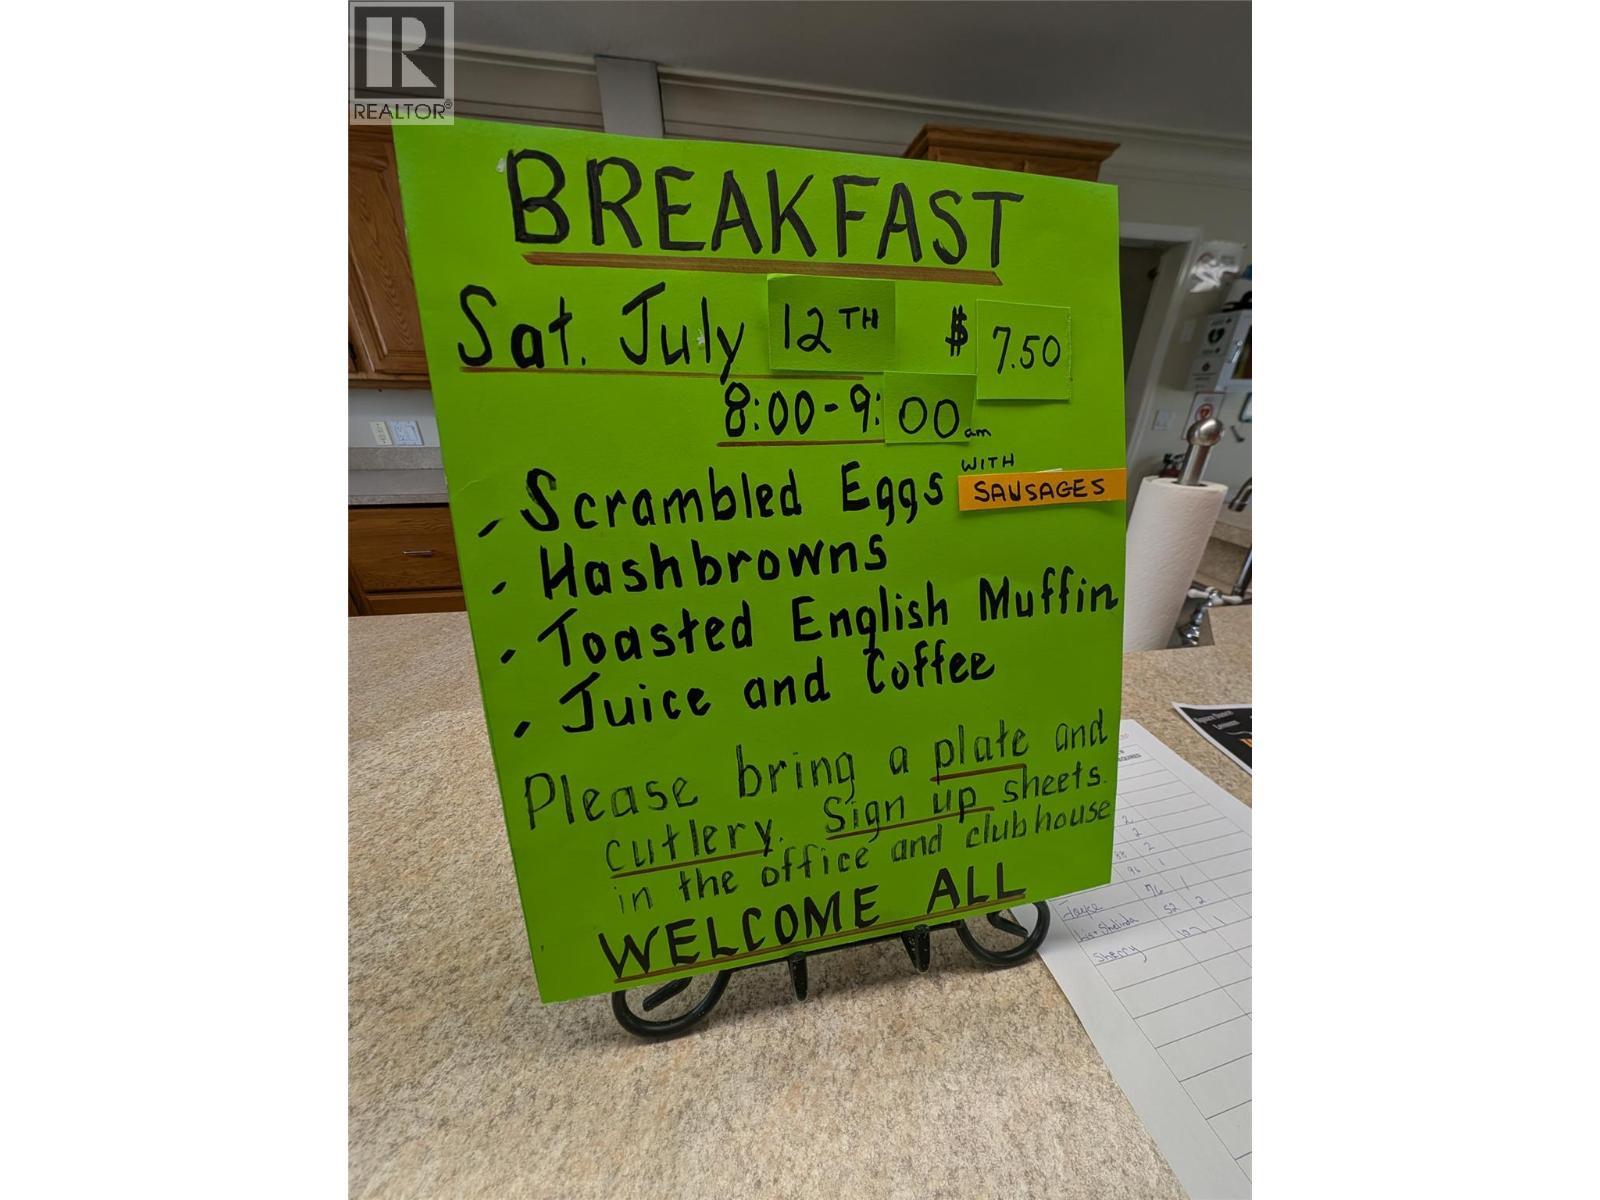 REALTOR®
BREAKFAST
Sat. July 12TH $ 7.50
8:00-9:00 am
WITH
. Scrambled Eggs SAUSAGES
. Hashbrowns
. Toasted English Muffin
. Juice and Coffee
Please bring a plate and
cutlery. Sign up sheets.
in the office and clubhouse
WELCOME ALL
2
2
88 2
96 1
Joyce 76 1
52 2
Sherry 127 1